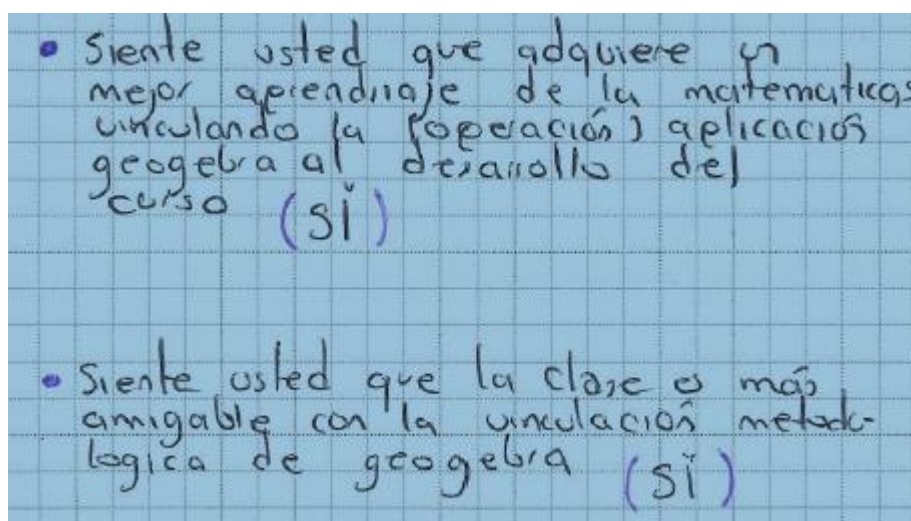 • Siente usted que adquiere un
mejor aprendizaje de la matematicas
vinculando la (operación) aplicación
geogebra al desarrollo del
curso (SÍ)
• Siente usted que la clase es más
amigable con la vinculación metodo-
logica de geogebra (SÍ)